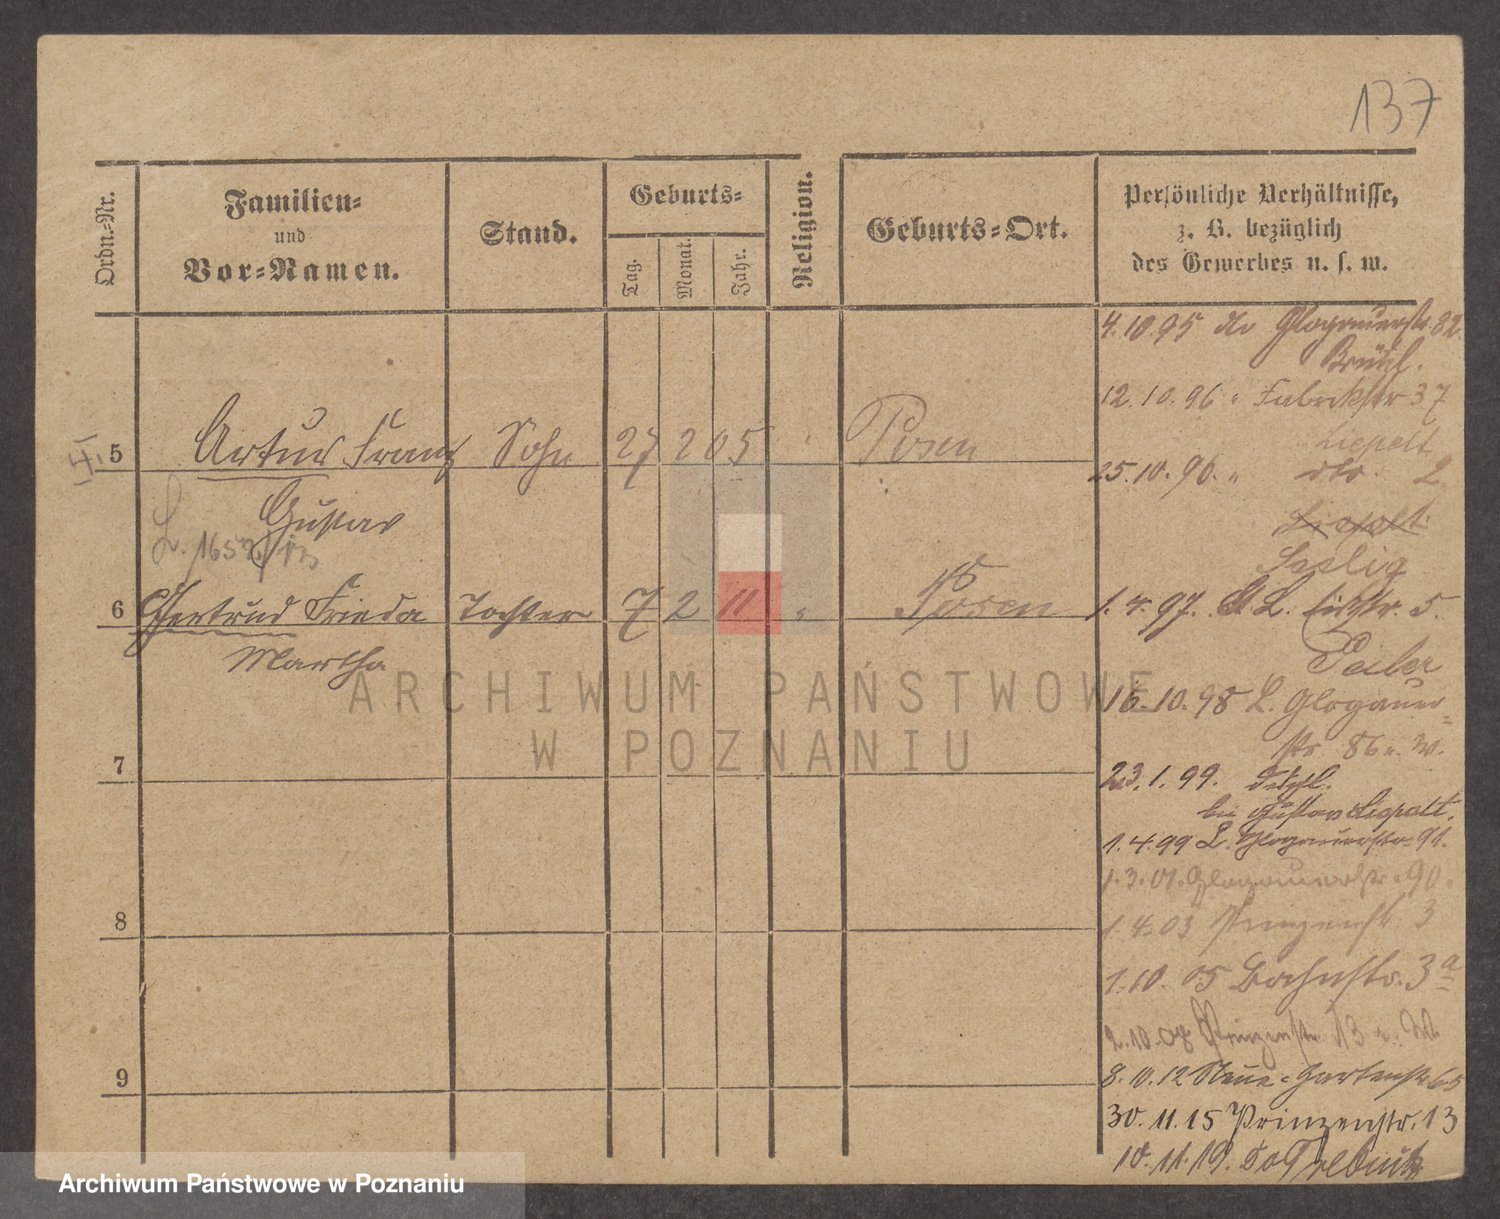 137
Ordn.-Nr.
Familien-
und
Vor-Namen.
Stand.
Geburts-
Tag.
Monat.
Jahr.
Religion.
Geburts-Ort.
Persönliche Verhältnisse,
z. B. bezüglich
des Gewerbes u. s. w.
4.10.95 do Glogauerstr. 82.
12.10.96 " Fabrikstr 37
Liepelt
25.10.96. " do. 2.
Liepelt
Seelig
5 Artur Franz Sohn 27 2 05 " Posen
Gustav
L. 1652/13
6 Gertrud Frieda Tochter 7 2 11 " Posen
Martha
1.4.97. St L. Eichstr. 5.
16.10.98 L. Glogauer-
str. 86 u. W.
23.1.99.
bei Gustav Liepelt.
1.4.99 L. Glogauerstr. 91.
1.3.01. Glogauerstr. 90.
1.4.03 Prinzenstr. 3
1.10.05 Bahnstr. 3a
2.10.08 Prinzenstr. 13 u. W.
8.10.12 Neue Gartenstr 65
30.11.15 Prinzenstr. 13
10.11.19.
7
8
9
ARCHIWUM PAŃSTWOWE
W POZNANIU
Archiwum Państwowe w Poznaniu